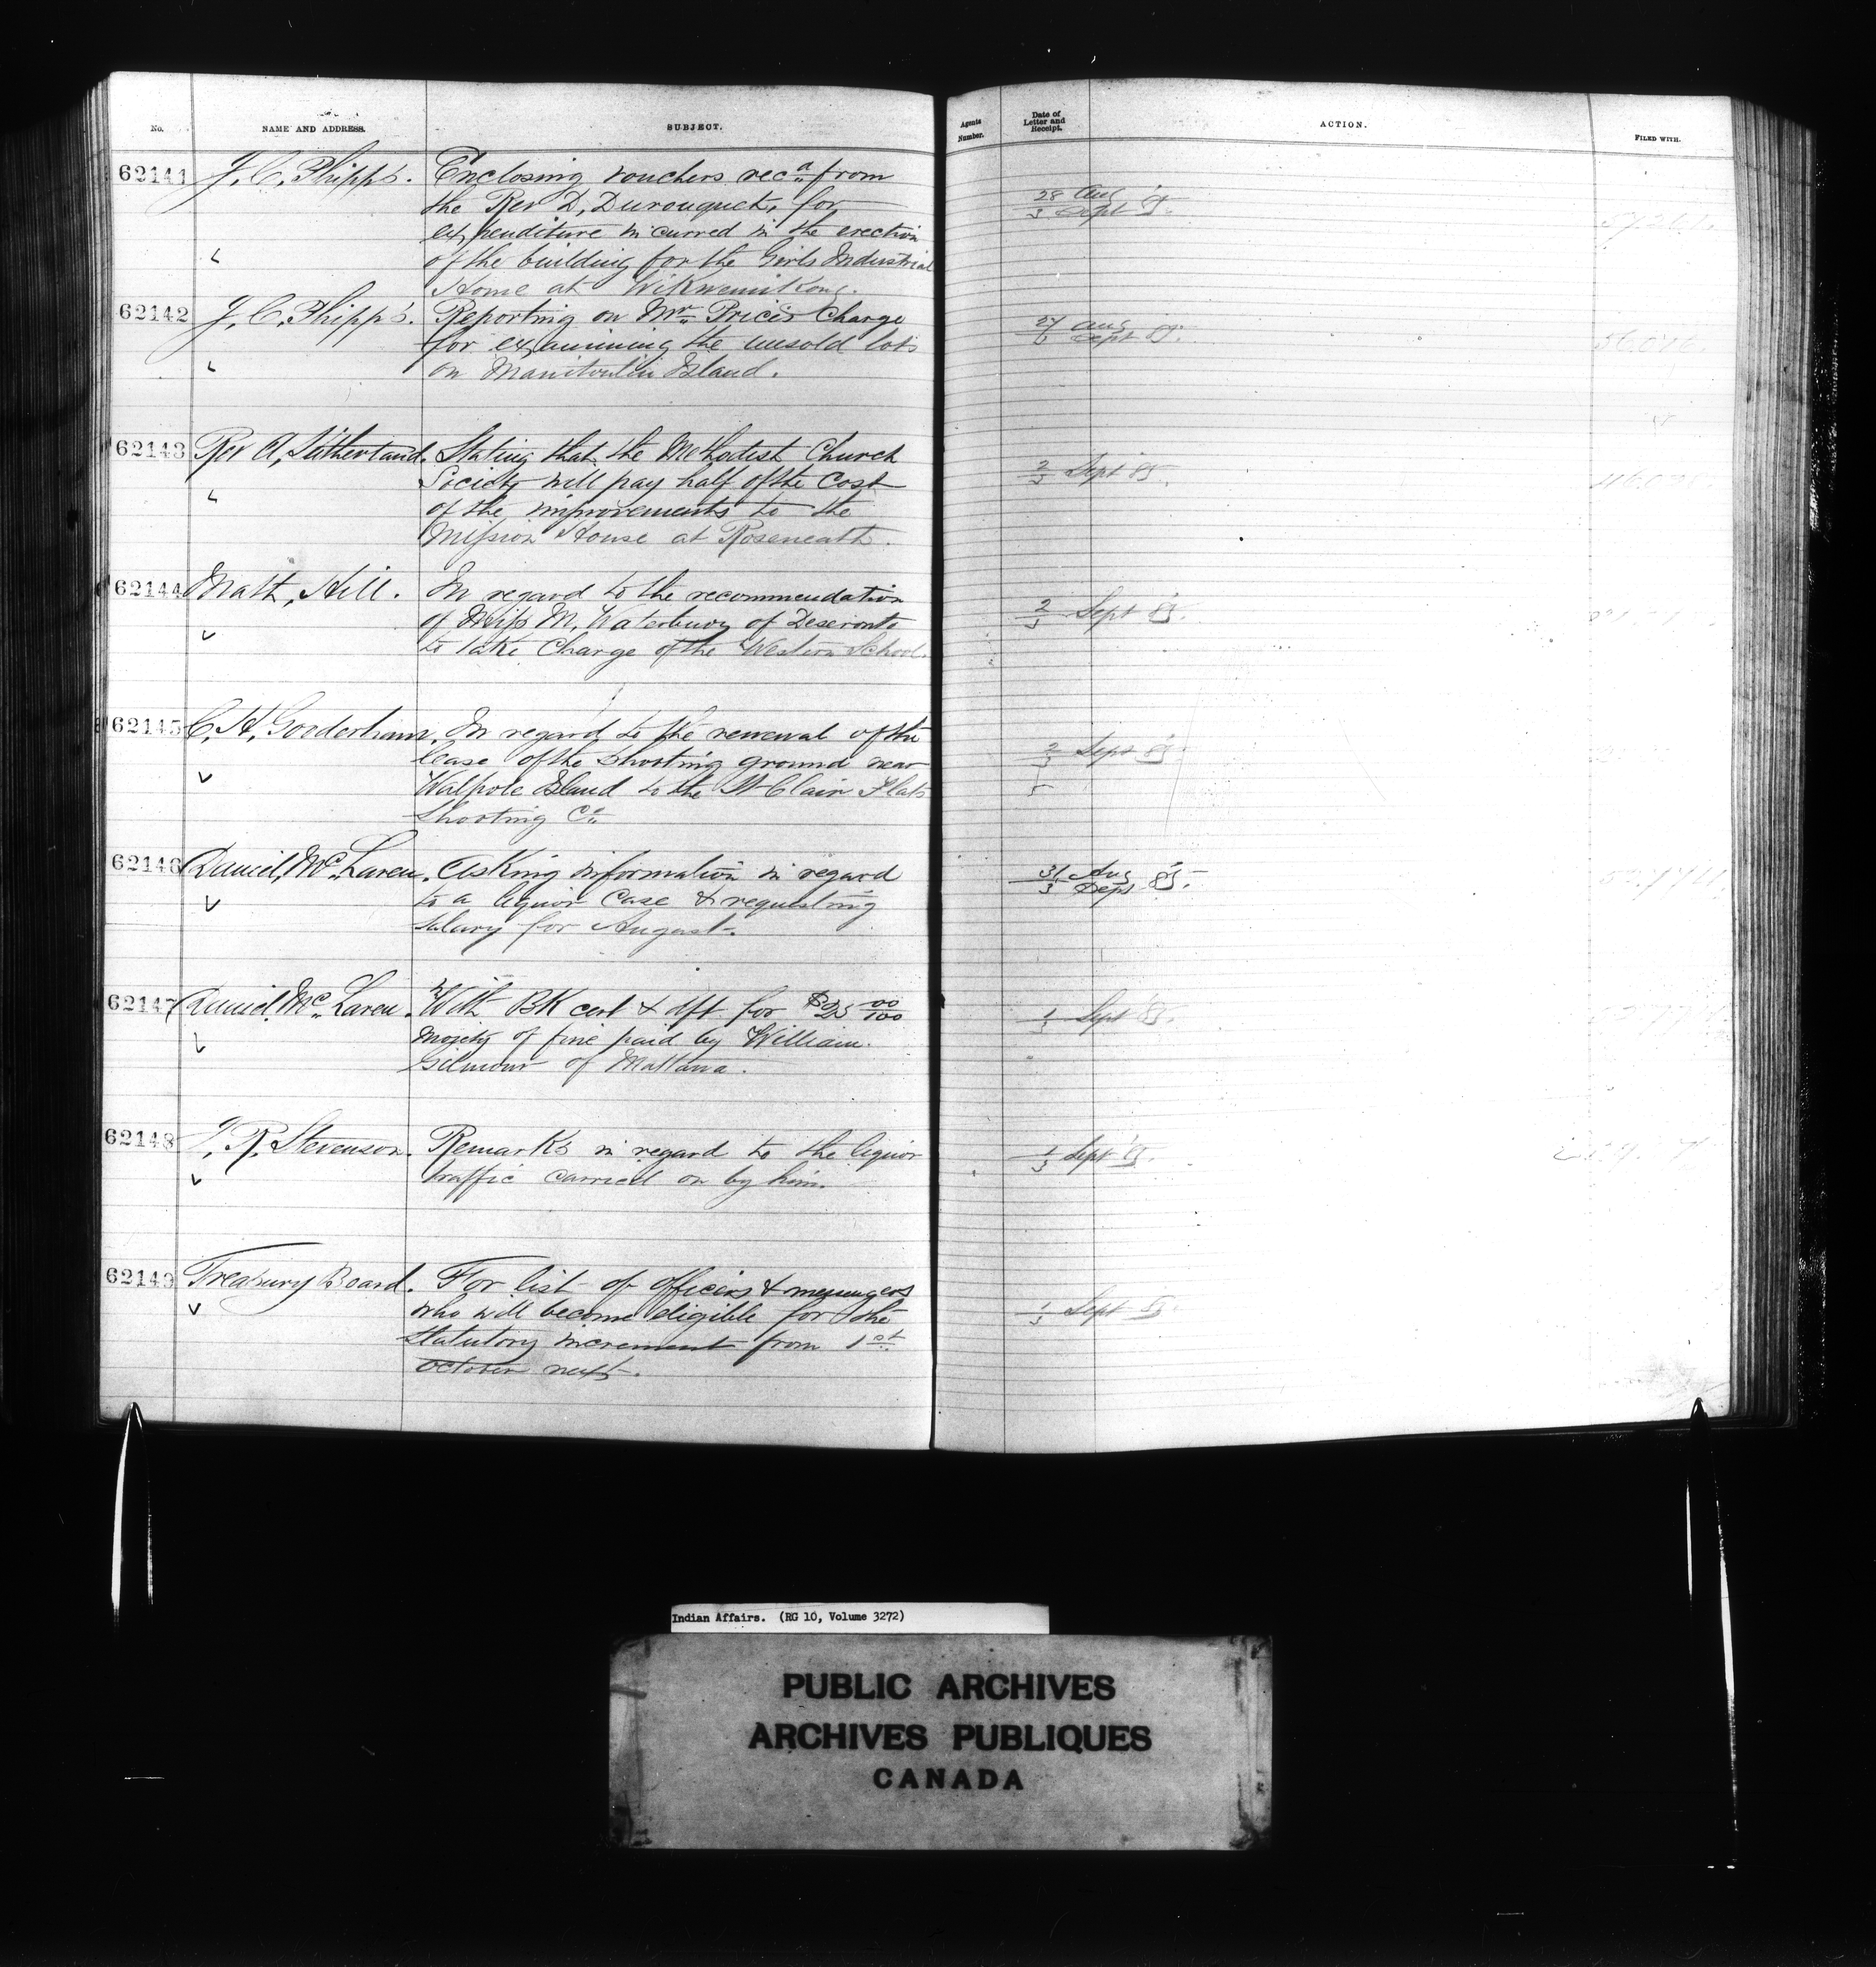 No. NAME AND ADDRESS. SUBJECT.
62141 J. C. Phipps. Enclosing vouchers rec'd from
the Rev D. Duronquet, for
expenditure incurred in the erection
of the building for the Girls Industrial
Home at Wikwemikong.
62142 J. C. Phipps. Reporting on Mr Price's Charge
for examining the unsold lots
on Manitoulin Island.
62143 Rev A. Sutherland. Stating that the Methodist Church
Society will pay half of the cost
of the improvements to the
Mission House at Roseneath.
62144 Matt. Hill. In regard to the recommendation
of Miss M. Waterbury of Deseronto
to take Charge of the Western School.
62145 C. H. Gooderham. In regard to the renewal of the
lease of the shooting ground near
Walpole Island to the St Clair Flats
Shooting Co
62146 Daniel McLaren. Asking information in regard
to a liquor case & requesting
salary for August.
62147 Daniel McLaren. With BK cert & dft for $25 00/100
moiety of fine paid by William
Gilmour of Mattawa.
62148 R. Stevenson. Remarks in regard to the liquor
traffic carried on by him.
62149 Treasury Board. For list of officers & messengers
who will become eligible for the
statutory increment from 1st
October next.
Agents Number. Date of Letter and Receipt. ACTION. FILED WITH.
28 Aug
3 Sept 85.
27 Aug
Sept 85.
2/3 Sept 85.
2/3 Sept 85.
2/3 Sept 85.
31 Aug
3 Sept 85.
1/3 Sept 85.
1/3 Sept 85.
1/3 Sept 85.
Indian Affairs. (RG 10, Volume 3272)
PUBLIC ARCHIVES
ARCHIVES PUBLIQUES
CANADA